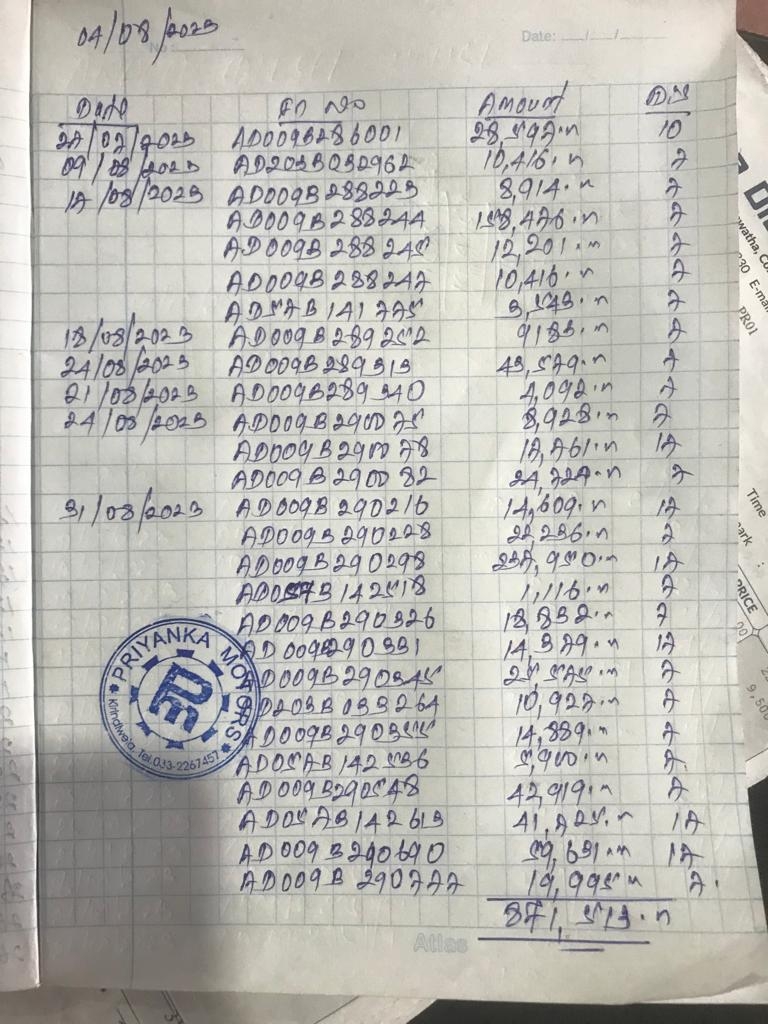 04/08/2023
No:
Date: __/__/__
Date In No Amount Dis
27/07/2023 AD009B286001 28,597.00 10
09/08/2023 AD203B032962 10,416.00 7
17/08/2023 AD009B288223 8,914.00 7
AD009B288244 158,476.00 7
AD009B288245 12,201.00 7
AD009B288247 10,416.00 7
AD57B141775 3,543.00 7
18/08/2023 AD009B289252 9183.00 7
24/08/2023 AD009B289313 43,579.00 7
21/08/2023 AD009B289340 4,092.00 7
24/08/2023 AD009B290075 8,928.00 7
AD009B290078 17,761.00 17
AD009B290082 24,724.00 7
31/08/2023 AD009B290216 14,609.00 17
AD009B290228 22,236.00 7
AD009B290298 237,950.00 17
AD057B142518 1,116.00 7
AD009B290326 18,832.00 7
AD009B290331 14,379.00 17
AD009B290345 25,575.00 7
AD203B033264 10,927.00 7
AD009B290355 14,889.00 7
AD057B142536 5,900.00 7
AD009B290548 42,919.00 7
AD057B142613 41,725.00 17
AD009B290690 59,631.00 17
AD009B290777 19,995.00 7.
871,513.00
PRIYANKA MOTORS
Kirindiwela, Tel.033-2267457
Atlas
watha, Co
E-mai
PR01
Time
ark :
PRICE
9,500